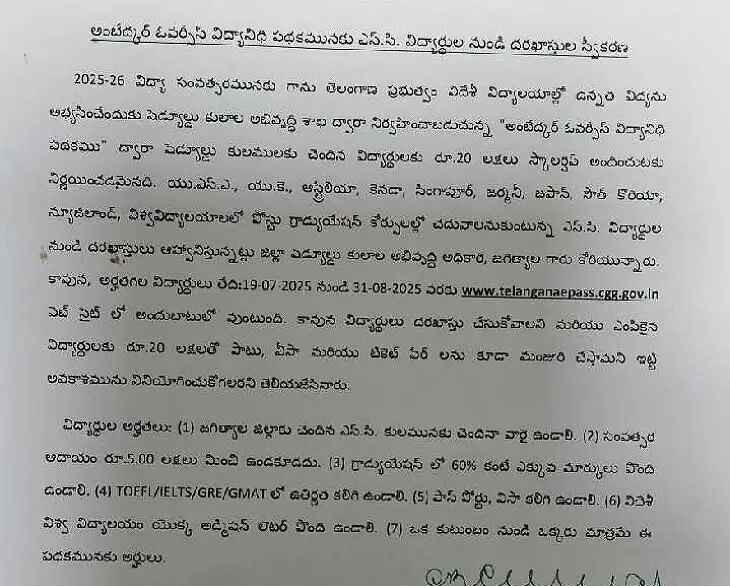 అంబేద్కర్ ఓవర్సీస్ విద్యానిధి పథకమునకు ఎస్.సి. విద్యార్థుల నుండి దరఖాస్తుల స్వీకరణ
2025-26 విద్యా సంవత్సరమునకు గాను తెలంగాణ ప్రభుత్వం విదేశీ విద్యాలయాల్లో ఉన్నత విద్యను
అభ్యసించేందుకు షెడ్యూల్డు కులాల అభివృద్ధి శాఖ ద్వారా నిర్వహించబడుచున్న "అంబేద్కర్ ఓవర్సీస్ విద్యానిధి
పథకము" ద్వారా షెడ్యూల్డు కులములకు చెందిన విద్యార్థులకు రూ.20 లక్షలు స్కాలర్షిప్ అందించుటకు
నిర్ణయించడమైనది. యు.ఎస్.ఎ., యు.కె., ఆస్ట్రేలియా, కెనడా, సింగాపూర్, జర్మనీ, జపాన్, సౌత్ కొరియా,
న్యూజిలాండ్, విశ్వవిద్యాలయాలలో పోస్టు గ్రాడ్యుయేషన్ కోర్సులల్లో చదువాలనుకుంటున్న ఎస్.సి. విద్యార్థుల
నుండి దరఖాస్తులు ఆహ్వానిస్తున్నట్లు జిల్లా షెడ్యూల్డు కులాల అభివృద్ధి అధికారి, జగిత్యాల గారు కోరియున్నారు.
కావున, అర్హతగల విద్యార్థులు తేది:19-07-2025 నుండి 31-08-2025 వరకు www.telanganaepass.cgg.gov.in
వెబ్ సైట్ లో అందుబాటులో వుంటుంది. కావున విద్యార్థులు దరఖాస్తు చేసుకోవాలని మరియు ఎంపికైన
విద్యార్థులకు రూ.20 లక్షలతో పాటు, వీసా మరియు టికెట్ ఫేర్ లను కూడా మంజూరి చేస్తామని ఇట్టి
అవకాశమును వినియోగించుకోగలరని తెలియజేసినారు.
విద్యార్థుల అర్హతలు: (1) జగిత్యాల జిల్లాకు చెందిన ఎస్.సి. కులమునకు చెందినా వారై ఉండాలి. (2) సంవత్సర
ఆదాయం రూ.5.00 లక్షలు మించి ఉండకూడదు. (3) గ్రాడ్యుయేషన్ లో 60% కంటే ఎక్కువ మార్కులు పొంది
ఉండాలి. (4) TOEFL/IELTS/GRE/GMAT లో ఉత్తీర్ణత కలిగి ఉండాలి. (5) పాస్ పోర్టు, విసా కలిగి ఉండాలి. (6) విదేశి
విశ్వ విద్యాలయం యొక్క అడ్మిషన్ లెటర్ పొంది ఉండాలి. (7) ఒక కుటుంబం నుండి ఒక్కరు మాత్రమే ఈ
పథకమునకు అర్హులు.